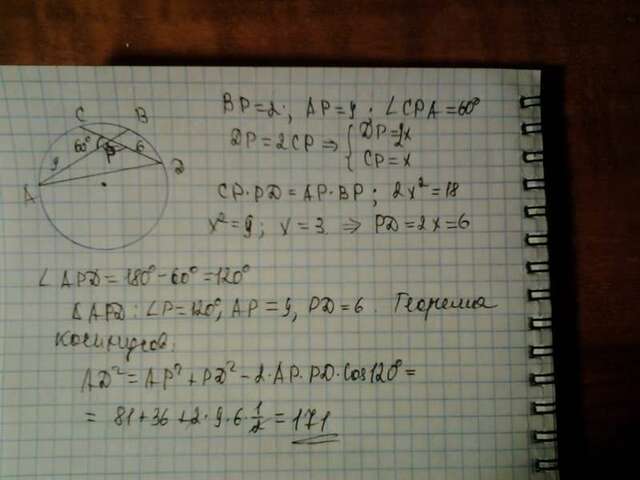 C B
60° P 6
9 D
A
BP=2; AP=9; ∠CPA=60°
DP=2CP ⇒ { DP=2x
CP=x
CP·PD=AP·BP; 2x²=18
x²=9; x=3 ⇒ PD=2x=6
∠APD=180°-60°=120°
ΔAPD: ∠P=120°, AP=9, PD=6. Теорема
косинусов:
AD²=AP²+PD²-2·AP·PD·cos120°=
= 81+36+2·9·6·1/2=171